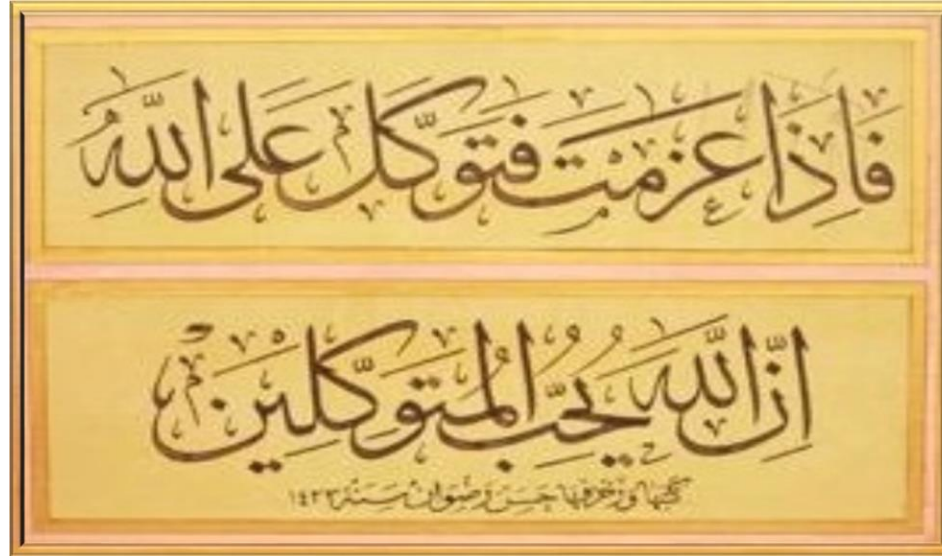 فَاِذَا عَزَمْتَ فَتَوَكَّلْ عَلَى اللّٰهِ
اِنَّ اللّٰهَ يُحِبُّ الْمُتَوَكِّلِينَ
كتبها وزخرفها حسن رضوان سنة ١٤٢٣